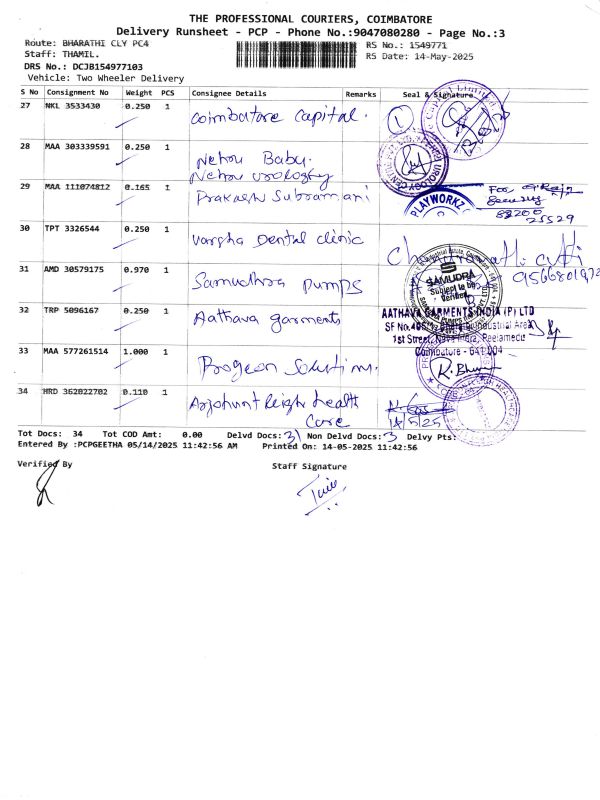 THE PROFESSIONAL COURIERS, COIMBATORE
Delivery Runsheet - PCP - Phone No.:9047080280 - Page No.:3
Route: BHARATHI CLY PC4
Staff: THAMIL.
DRS No.: DCJB154977103
Vehicle: Two Wheeler Delivery
RS No.: 1549771
RS Date: 14-May-2025
S No Consignment No Weight PCS Consignee Details Remarks Seal & Signature
27 NKL 3533430 0.250 1 Coimbatore Capital.
28 MAA 303339591 0.250 1 Nehru Babu.
Nehru Urology
29 MAA 111074812 0.165 1 Prakash Subramani
PLAYWORKS
For
Security
88200
25529
30 TPT 3326544 0.250 1 Varsha Dental clinic
31 AMD 30579175 0.970 1 Samudhra Pumps
SAMUDRA
Subject to be
Verified
32 TRP 5096167 0.250 1 Aathava garments
AATHAVA GARMENTS INDIA (P) LTD
Industrial Area
1st Street, Nava India, Peelamedu
Coimbatore - 641 004
33 MAA 577261514 1.000 1 Solutions.
34 HRD 362022702 0.110 1 Reigh health
Care
14/5/25
Tot Docs: 34 Tot COD Amt: 0.00 Delvd Docs: 31 Non Delvd Docs: 3 Delvy Pts:
Entered By :PCPGEETHA 05/14/2025 11:42:56 AM Printed On: 14-05-2025 11:42:56
Verified By
Staff Signature